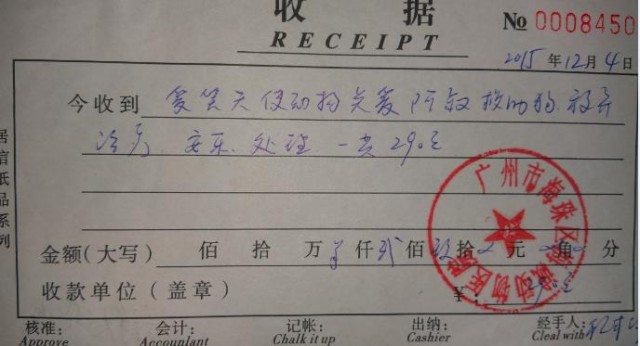 收 据 № 0008450
RECEIPT
2015 年 12 月 4 日
今收到 爱笑天使动物关爱所救援助狗 放弃
治疗 安乐 处理 一共 290元
居信纸品系列
金额(大写) 佰 拾 万 仟 贰 佰 玖 拾 元 角 分
收款单位(盖章) ¥:
广州市海珠区 动物医
核准: 会计: 记帐: 出纳: 经手人:
Approve Accountant Chalk it up Cashier Cleal with